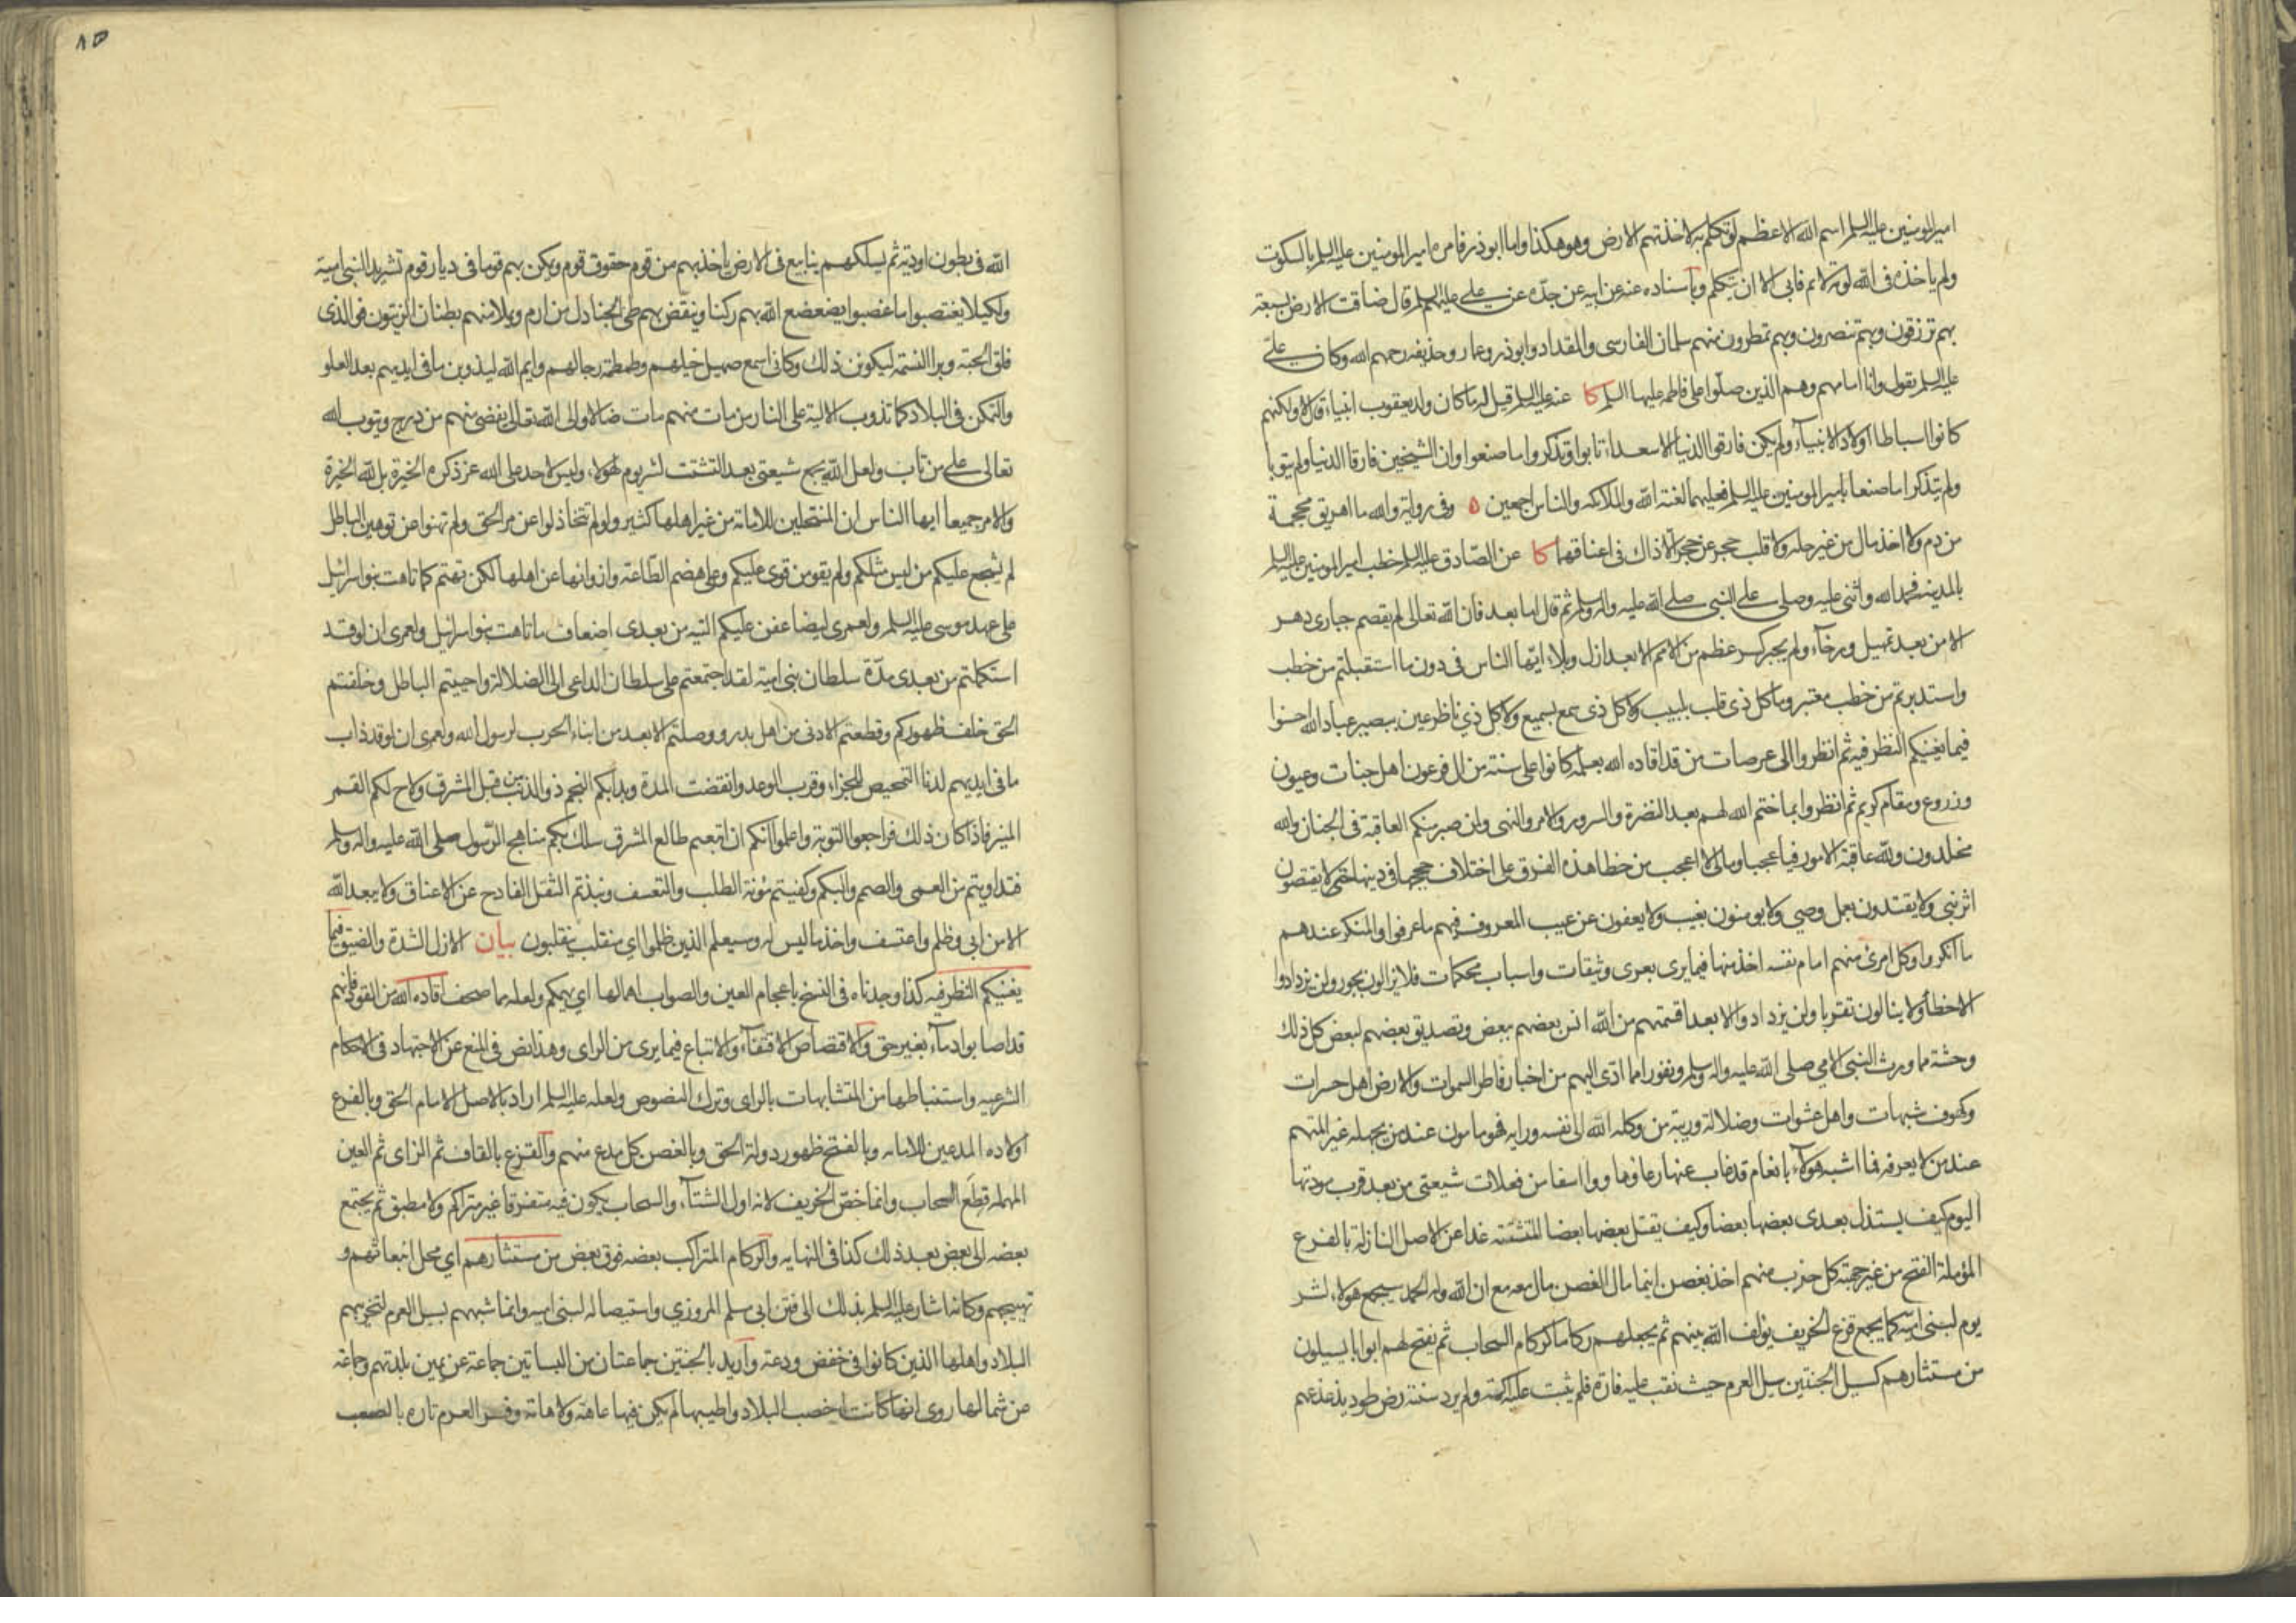 امير المومنين عليه السلم اسم الله الاعظم لو تكلم به لاخذتهم الارض وهو هكذا واما ابوذر فامره امير المومنين عليه السلم بالسكوت
ولم ياخذه في الله لومة لائم فابى الا ان يتكلم وباسناده عنه عن ابيه عن جده عن علي عليهم السلم قال ضاقت الارض بسبعة
بهم ترزقون وبهم تنصرون وبهم تمطرون منهم سلمان الفارسي والمقداد وابوذر وعمار وحذيفه رحمهم الله وكان علي
عليه السلم يقول وانا امامهم وهم الذين صلوا على فاطمه عليها السلم كا عنه عليه السلم قيل له ما كان ولد يعقوب انبياء قال لا ولكنهم
كانوا اسباطا اولاد الانبياء ولم يكن فارقوا الدنيا الا سعداء تابوا وتذكروا ما صنعوا وان الشيخين فارقا الدنيا ولم يتوبا
ولم يتذكرا ما صنعا بامير المومنين عليه السلم فعليهما لعنة الله والملائكه والناس اجمعين ه وفي رواية والله ما اهريق محجمة
من دم ولا اخذ مال من غير حله ولا قلب حجر عن حجر الا ذاك في اعناقهما كا عن الصادق عليه السلم خطب امير المومنين عليه السلم
بالمدينه فحمد الله واثنى عليه وصلى على النبي صلى الله عليه واله وسلم ثم قال اما بعد فان الله تعالى لم يقصم جباري دهر
الا من بعد تمهيل ورخاء ولم يجبر كسر عظم من الامم الا بعد ازل وبلاء ايها الناس في دون ما استقبلتم من خطب
واستدبرتم من خطب معتبر وما كل ذي قلب بلبيب ولا كل ذي سمع بسميع ولا كل ذي ناظر عين ببصير عباد الله احسنوا
فيما يغنيكم النظر فيه ثم انظروا الى عرصات من قد اقاده الله بعلمه كانوا على سنة من ال فرعون اهل جنات وعيون
وزروع ومقام كريم ثم انظروا بما ختم الله لهم بعد النضرة والسرور والامر والنهي ولمن صبر منكم العاقبة في الجنان والله
مخلدون ولله عاقبة الامور فيا عجبا وما لي لا اعجب من خطا هذه الفرق على اختلاف حججها في دينها حتى لا يقتصون
اثر نبي ولا يقتدون بعمل وصي ولا يومنون بغيب ولا يعفون عن عيب المعروف فيهم ما عرفوا والمنكر عندهم
ما انكروا وكل امرئ منهم امام نفسه اخذ منها فيما يرى بعرى وثيقات واسباب محكمات فلا يزالون بجور ولن يزدادوا
الا خطأ ولا ينالون تقربا ولن يزدادوا الا بعدا من الله انس بعضهم ببعض وتصديق بعضهم لبعض كل ذلك
وحشة مما ورث النبي الامي صلى الله عليه واله وسلم ونفورا مما ادى اليهم من اخبار فاطر السموات والارض اهل حسرات
وكهوف شبهات واهل عشوات وضلالة وريبة من وكله الله الى نفسه ورايه فهو مامون عند من يجهله غير المتهم
عند من لا يعرفه فما اشبه هولاء بانعام قد غاب عنها رعاؤها ووا اسفا من فعلات شيعتي من بعد قرب مودتها
اليوم كيف يستذل بعدي بعضها بعضا وكيف يقتل بعضها بعضا المتشتتة غدا عن الاصل النازلة بالفرع
المؤملة الفتح من غير جهته كل حزب منهم اخذ بغصن اينما مال الغصن مال معه مع ان الله وله الحمد سيجمع هولاء لشر
يوم لبني اميه كما يجمع قزع الخريف يؤلف الله بينهم ثم يجعلهم ركاما كركام السحاب ثم يفتح لهم ابوابا يسيلون
من مستثارهم كسيل الجنتين سيل العرم حيث نقب عليه فارة فلم يثبت عليه اكمة ولم يرد سننه رض طود يذعذعهم
الله في بطون اودية ثم يسلكهم ينابيع في الارض ياخذ بهم من قوم حقوق قوم ويمكن بهم قوما في ديار قوم تشريدا لبني امية
ولكيلا يغتصبوا ما غصبوا يضعضع الله بهم ركنا وينقض بهم طي الجنادل من ارم ويملا منهم بطنان الزيتون فو الذي
فلق الحبة وبرا النسمة ليكونن ذلك وكاني اسمع صهيل خيلهم وطمطمة رجالهم وايم الله ليذوبن ما في ايديهم بعد العلو
والتمكن في البلاد كما تذوب الالية على النار من مات منهم مات ضالا والى الله تعالى يفضي منهم من درج ويتوب الله
تعالى على من تاب ولعل الله يجمع شيعتي بعد التشتت لشر يوم لهولاء وليس لاحد على الله عز ذكره الخيرة بل لله الخيرة
والامر جميعا ايها الناس ان المنتحلين للامامة من غير اهلها كثير ولو لم تتخاذلوا عن مر الحق ولم تهنوا عن توهين الباطل
لم يشجع عليكم من ليس مثلكم ولم يقو من قوي عليكم وعلى هضم الطاعة وازوائها عن اهلها لكن تهتم كما تاهت بنو اسرائيل
على عهد موسى عليه السلم ولعمري ليضاعفن عليكم التيه من بعدي اضعاف ما تاهت بنو اسرائيل ولعمري ان لو قد
استكملتم من بعدي مدة سلطان بني امية لقد اجتمعتم على سلطان الداعي الى الضلالة واحييتم الباطل وخلفتم
الحق خلف ظهوركم وقطعتم الادنى من اهل بدر ووصلتم الابعد من ابناء الحرب لرسول الله ولعمري ان لو قد ذاب
ما في ايديهم لدنا التمحيص للجزاء وقرب الوعد وانقضت المدة وبدا لكم النجم ذو الذنب من قبل المشرق ولاح لكم القمر
المنير فاذا كان ذلك فراجعوا التوبة واعلموا انكم ان اتبعتم طالع المشرق سلك بكم مناهج الرسول صلى الله عليه واله وسلم
فتداويتم من العمى والصم والبكم وكفيتم مؤنة الطلب والتعسف ونبذتم الثقل الفادح عن الاعناق ولا يبعد الله
الا من ابى وظلم واعتسف واخذ ما ليس له وسيعلم الذين ظلموا اي منقلب ينقلبون بيان الازل الشدة والضيق فيما
يغنيكم النظر فيه كذا وجدناه في النسخ باعجام العين والصواب اهمالها اي يهمكم ولعله مما صحف اقاده الله من القود فانهم
قد اصابوا دماء بغير حق والاقتصاص الاقتفاء والاتباع فيما يرى من الراي وهذا نص في المنع عن الاجتهاد في الاحكام
الشرعيه واستنباطها من المتشابهات بالراي وترك النصوص ولعله عليه السلم اراد بالاصل الامام الحق وبالفرع
اولاده المدعين للامامه وبالفتح ظهور دولة الحق وبالغصن كل مدع منهم والقزع بالقاف ثم الزاي ثم العين
المهمله قطع السحاب وانما خص الخريف لانه اول الشتاء والسحاب يكون فيه متفرقا غير متراكم ولا مطبق ثم يجتمع
بعضه الى بعض بعد ذلك كذا في النهايه والركام المتراكب بعضه فوق بعض من مستثارهم اي محل انبعاثهم و
تهييجهم وكانه اشار عليه السلم بذلك الى فتن ابي مسلم المروزي واستيصاله لبني اميه وانما شبههم بسيل العرم لتخريبهم
البلاد واهلها الذين كانوا في خفض ودعة واريد بالجنتين جماعتان من البساتين جماعة عن يمين بلدتهم وجماعة
عن شمالها روي انها كانت اخصب البلاد واطيبها لم يكن فيها عاهة ولا هامة وفسر العرم تاره بالصعب